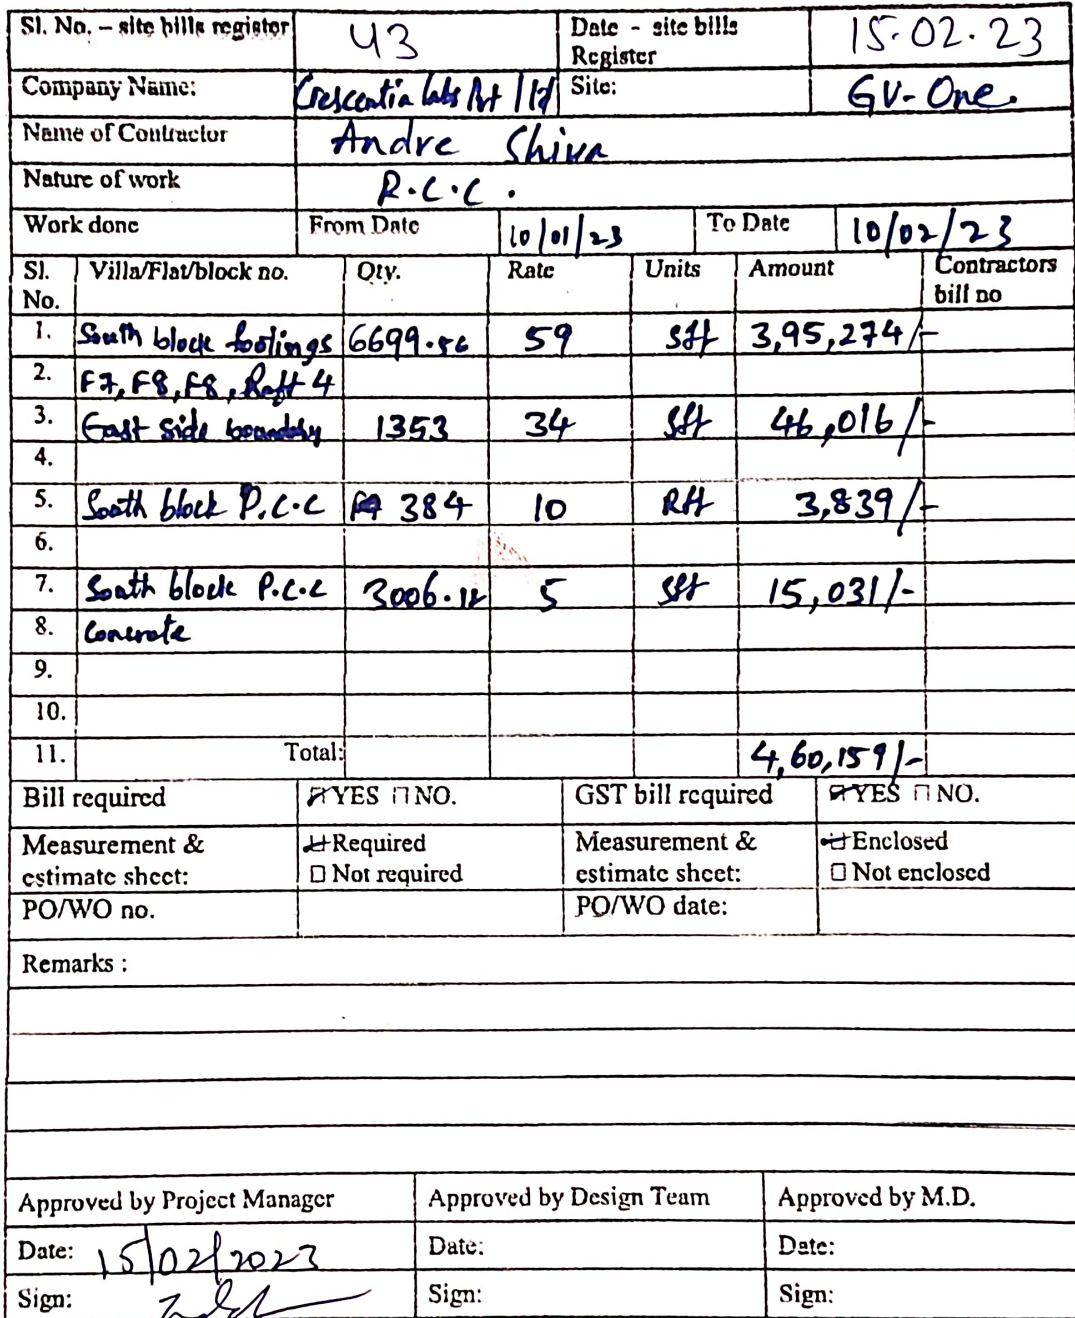 Sl. No. – site bills register 43 Date - site bills Register 15.02.23
Company Name: Crescentia labs Pvt ltd Site: GV-One.
Name of Contractor Andre Shiva
Nature of work R.C.C.
Work done From Date 10/01/23 To Date 10/02/23
Sl. No. Villa/Flat/block no. Qty. Rate Units Amount Contractors bill no
1. South block footings 6699.56 59 sft 3,95,274/-
2. F7, F8, F8, Raft 4
3. East side boundary 1353 34 sft 46,016/-
4.
5. South block P.C.C 384 10 Rft 3,839/-
6.
7. South block P.C.C 3006.12 5 sft 15,031/-
8. Concrete
9.
10.
11. Total: 4,60,159/-
Bill required YES NO. GST bill required YES NO.
Measurement & estimate sheet: Required Measurement & estimate sheet: Enclosed
Not required Not enclosed
PO/WO no. PO/WO date:
Remarks :
Approved by Project Manager Approved by Design Team Approved by M.D.
Date: 15/02/2023 Date: Date:
Sign: Sign: Sign: